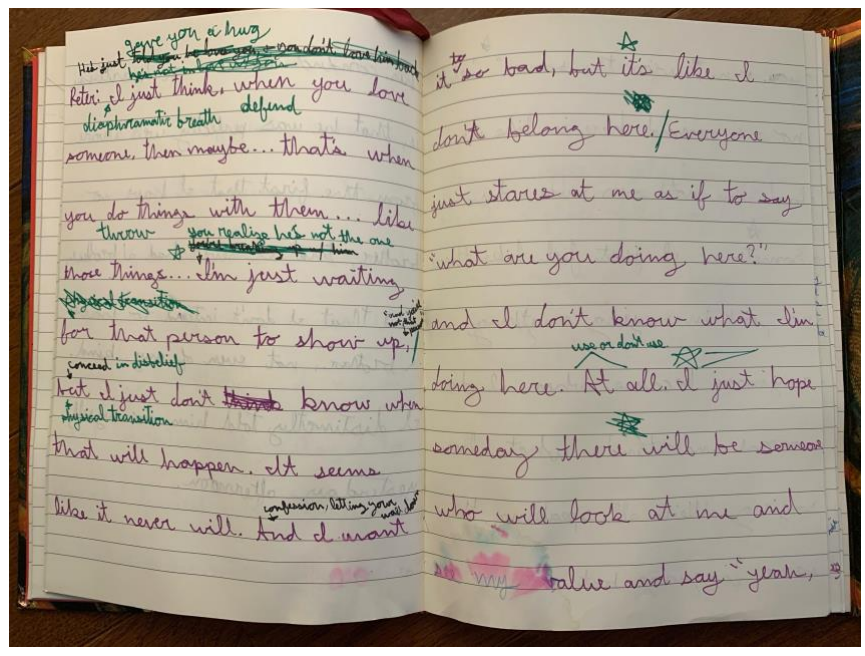 gave you a hug
He's just told you he loves you + you don't love him back
Peter: I just think, when you love
diaphramatic breath defend
someone, then maybe... that's when
you do things with them... like
throw you realize he's not the one
those things... I'm just waiting
physical transition
for that person to show up,
concead in disbelief
but I just don't think know when
physical transition
that will happen. It seems
confession, letting your wall down
like it never will. And I want
it to so bad, but it's like I
don't belong here. / Everyone
just stares at me as if to say
"what are you doing here?"
and I don't know what I'm
use or don't use
doing here. At all. I just hope
someday there will be someone
who will look at me and
my value and say "yeah,